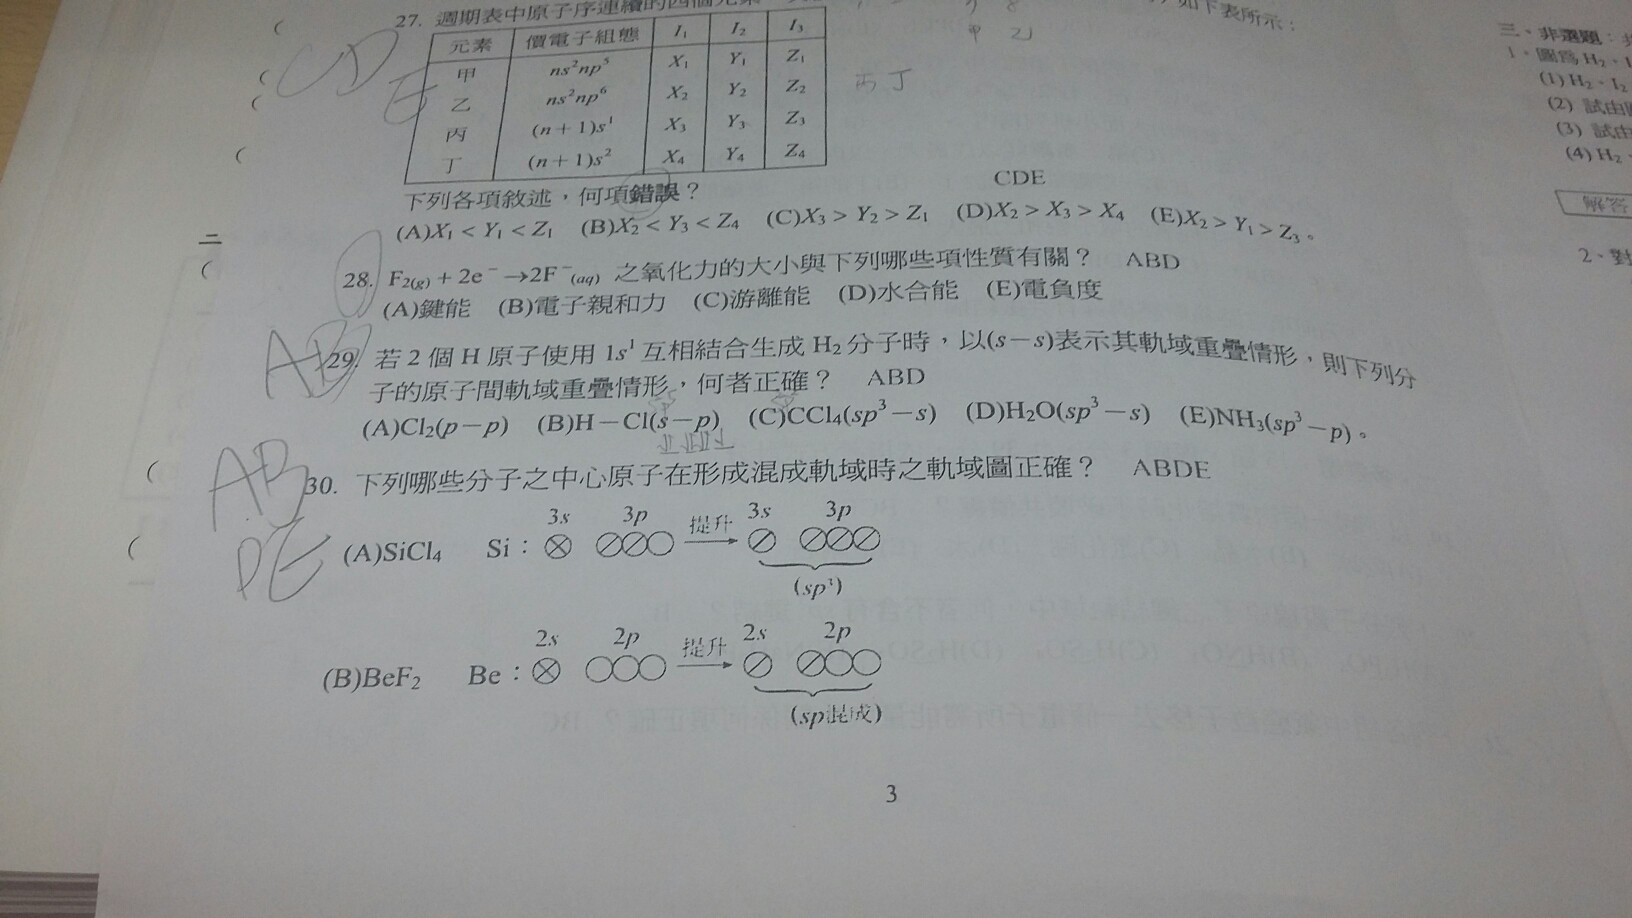 27. 週期表中原子序連續的四個元素
如下表所示：
元素 價電子組態 I₁ I₂ I₃
甲 ns²np⁵ X₁ Y₁ Z₁
乙 ns²np⁶ X₂ Y₂ Z₂
丙 (n＋1)s¹ X₃ Y₃ Z₃
丁 (n＋1)s² X₄ Y₄ Z₄
甲 乙
丙 丁
CD
E
下列各項敘述，何項錯誤？ CDE
(A)X₁＜Y₁＜Z₁ (B)X₂＜Y₃＜Z₄ (C)X₃＞Y₂＞Z₁ (D)X₂＞X₃＞X₄ (E)X₂＞Y₁＞Z₃。
二
28. F₂(g)＋2e⁻→2F⁻(aq) 之氧化力的大小與下列哪些項性質有關？ ABD
(A)鍵能 (B)電子親和力 (C)游離能 (D)水合能 (E)電負度
AB
29. 若 2 個 H 原子使用 1s¹ 互相結合生成 H₂ 分子時，以(s－s)表示其軌域重疊情形，則下列分
子的原子間軌域重疊情形，何者正確？ ABD
(A)Cl₂(p－p) (B)H－Cl(s－p) (C)CCl₄(sp³－s) (D)H₂O(sp³－s) (E)NH₃(sp³－p)。
AB
DE
30. 下列哪些分子之中心原子在形成混成軌域時之軌域圖正確？ ABDE
3s 3p 提升 3s 3p
(A)SiCl₄ Si：
(sp³)
2s 2p 提升 2s 2p
(B)BeF₂ Be：
(sp混成)
3
三、非選題：
1、圖為 H₂、I
(1) H₂、I₂
(2) 試由
(3) 試由
(4) H₂、
解答
2、對